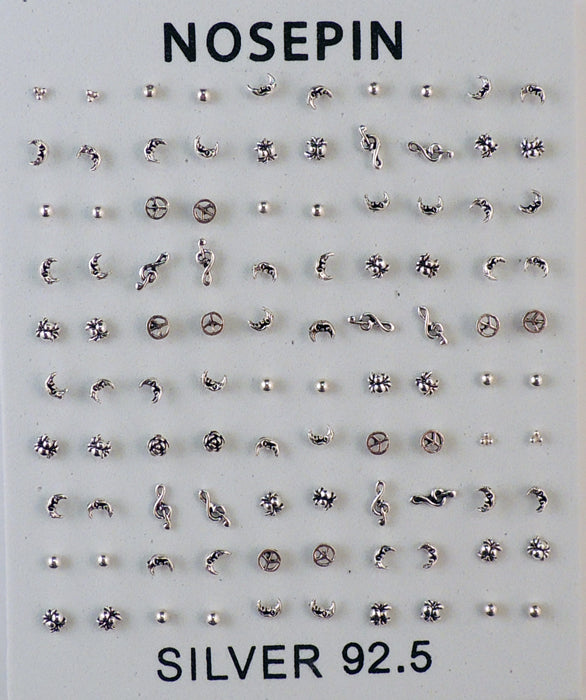 NOSEPIN
SILVER 92.5